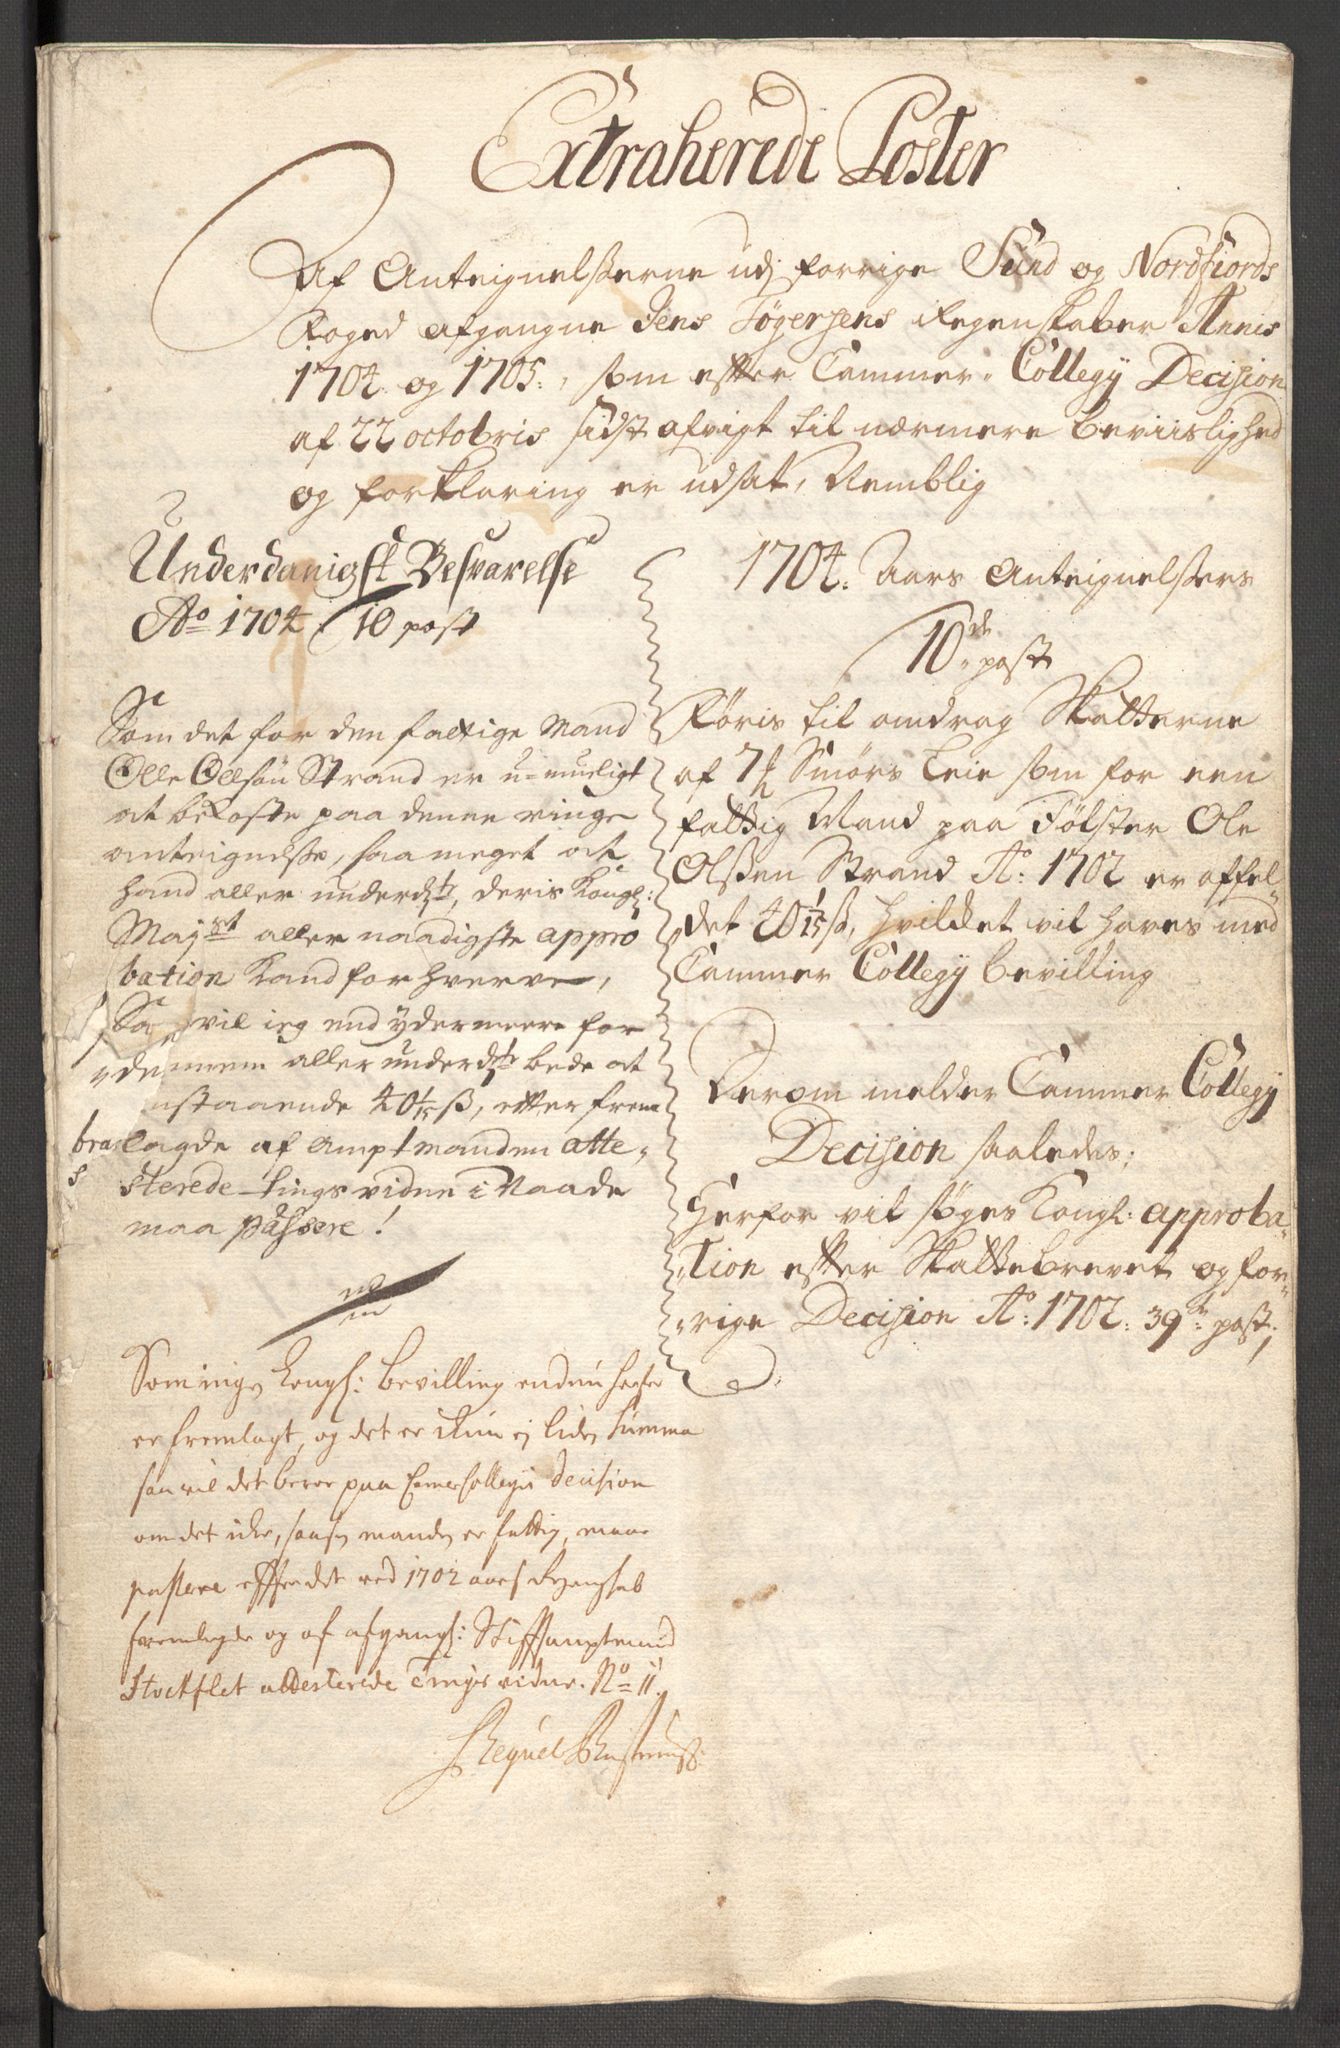 Extraherede Poster
Af Anteignelsserne udj forrige Sund og Nordfiords
Foged afgangne Jens Jøgersens Regenskaber Annis
1704 og 1705, som effter Cammer Collegij Decision
af 22 octobris sidst afvigt til nærmere beviislighed
og forklaring er udsat, Nemblig
Underdanigst Besvarelse
Ao 1704 10 post
Som det for den fattige Mand
Olle Ollsøn Strand er u-mueligt
at bekoste paa denne ringe
anteignelsse, saa meget at
hand aller underdte, deris Kongl:
Mayst aller naadigste appro
bation Kand forhverve,
Saa vil ieg end ydermeere for
dennem aller underdte bede at
staaende 40 1/15 ß, effter frem
lagde af Amptmanden atte-
sterede tingsvidne i Naade
maa passere!
1704. Aars Anteignelssers
10de post
Føris til andrag Skatterne
af 7 1/2 Smørs Leie som for een
fattig Mand paa Følster Ole
Olssen Strand Ao: 1702 er affel-
det 40 1/15 ß, hvilcket vil haves med
Cammer Collegij bevilling
Derom melder Cammer Collegij
Decision saaledes;
Herfor vil søges Kongl: approba-
tion effter Skattebrevet og for-
rige Decision Ao: 1702. 39te post,
Som ingen Kongl: bevilling endnu her
er fremlagt, og det er ikun ej liden Summa
saa vil det beroe paa Camercollegii Decision
om det icke, saasom manden er fattig, maae
passere effter det ved 1702 aars Regenskab
fremlagde og af afgangne: Stifftsamptmand
Stockflet attesterede Tingsvidne. No 11.